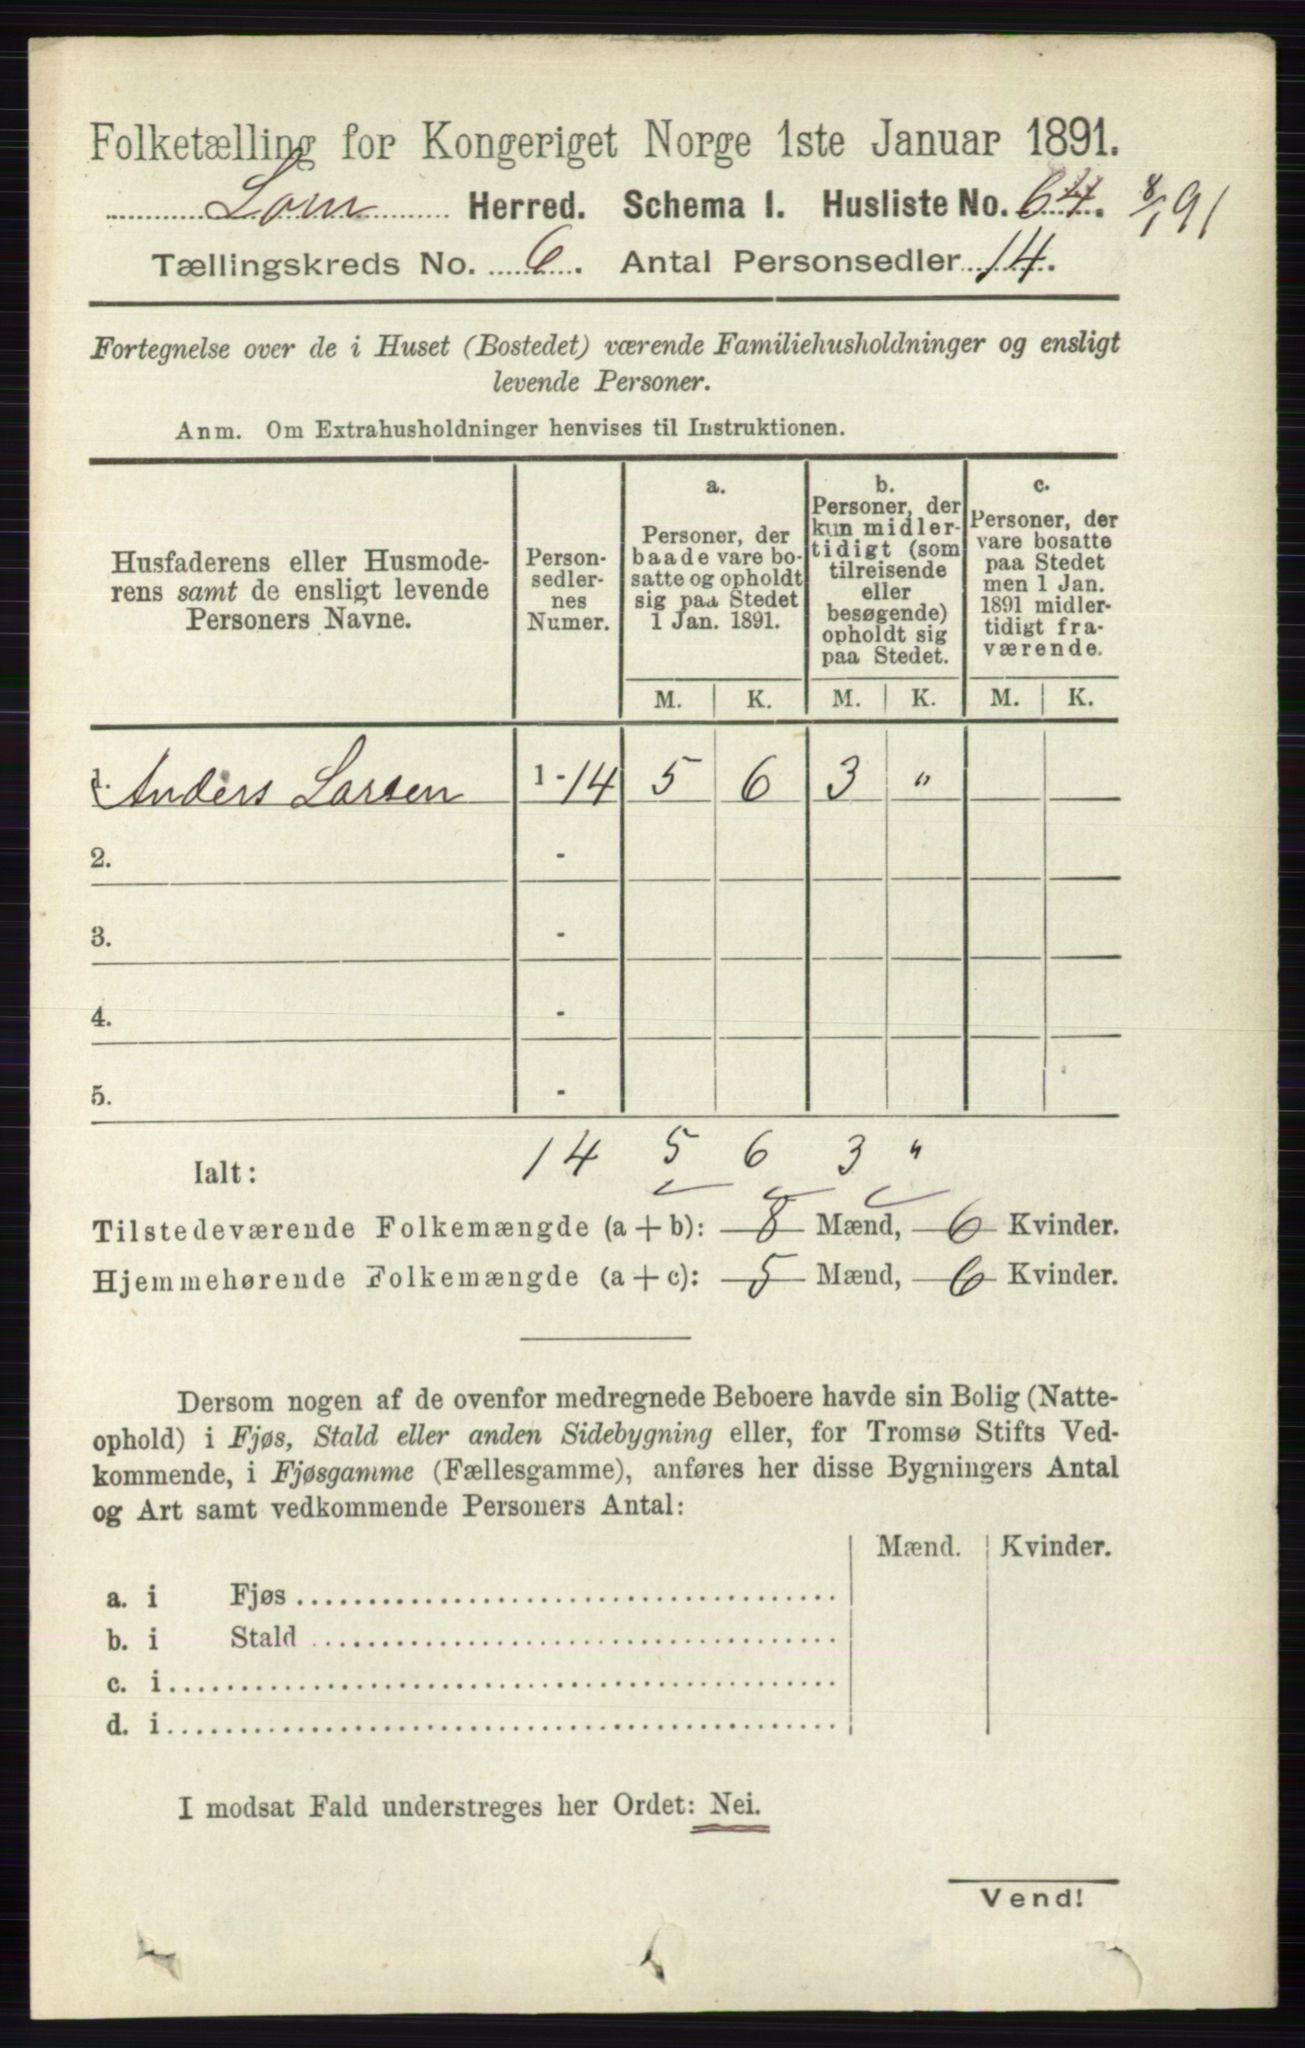 Folketælling for Kongeriget Norge 1ste Januar 1891.
Lom Herred. Schema I. Husliste No. 64. 8/1 91
Tællingskreds No. 6. Antal Personsedler 14.
Fortegnelse over de i Huset (Bostedet) værende Familiehusholdninger og ensligt
levende Personer.
Anm. Om Extrahusholdninger henvises til Instruktionen.
Husfaderens eller Husmode-
rens samt de ensligt levende
Personers Navne.
Person-
sedler-
nes
Numer.
a.
Personer, der
baade vare bo-
satte og opholdt
sig paa Stedet
1 Jan. 1891.
b.
Personer, der
kun midler-
tidigt (som
tilreisende
eller
besøgende)
opholdt sig
paa Stedet.
c.
Personer, der
vare bosatte
paa Stedet
men 1 Jan.
1891 midler-
tidigt fra-
værende.
M. K. M. K. M. K.
1. Anders Larsen 1-14 5 6 3 "
2. -
3. -
4. -
5. -
Ialt: 14 5 6 3 "
Tilstedeværende Folkemængde (a + b): 8 Mænd, 6 Kvinder.
Hjemmehørende Folkemængde (a + c): 5 Mænd, 6 Kvinder.
Dersom nogen af de ovenfor medregnede Beboere havde sin Bolig (Natte-
ophold) i Fjøs, Stald eller anden Sidebygning eller, for Tromsø Stifts Ved-
kommende, i Fjøsgamme (Fællesgamme), anføres her disse Bygningers Antal
og Art samt vedkommende Personers Antal:
Mænd. Kvinder.
a. i Fjøs
b. i Stald
c. i
d. i
I modsat Fald understreges her Ordet: Nei.
Vend!